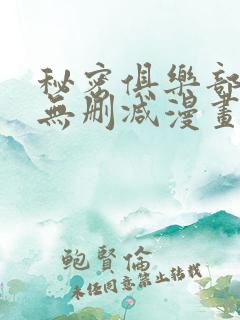 秘密俱樂部
無刪减漫畫
鲍賢倫
未任同意禁止转载